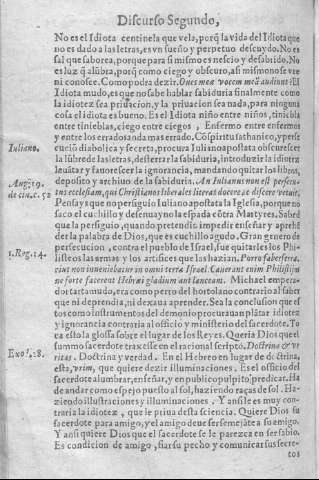 Discurso Segundo,
No es el Idiota centinela que vela, porq̃ la vida del Idiota que
no es dado a las letras, es vn sueño y perpetuo descuydo. No es
sal que saborea, porque para si mismo es nescio y desabrido. No
es luz q̃ alũbra, porq̃ como ciego y obscuro, asi mismo no se ve
ni conosce. Como podra dezir. Oues meæ vocem meã audiunt? El
Idiota mudo, es que no sabe hablar sabiduria finalmente como
la idiotez sea priuacion, y la priuacion sea nada, para ninguna
cosa el idiota es bueno. Es el Idiota niño entre niños, tiniebla
entre tinieblas, ciego entre ciegos, Enfermo entre enfermos
y entre los errados anda mas errado. Cõ spiritu sathanico, y
Iuliano.
cucion diabolica y secreta, procura Iuliano apostata obscurescer
la lũbre de las letras, desterrar la sabiduria, introduzir la idiotez
leuãtar y fauorescer la ignorancia, mandando quitar los libros,
deposito y archiuo de la sabiduria. An Iulianus non est persecu-
Aug. 19.
de ciu. c. 52
tus ecclesiam, qui Christianos liberales literas docere ac discere vetuit,
Pensays que no persiguio Iuliano apostata la Iglesia, porque no
saco el cuchillo y desenuayno la espada cõtra Martyres. Sabed
que la persiguio, quando pretendis impedir enseñar y aprehẽ
der la palabra de Dios, que es cuchillo agudo. Gran genero de
persecucion, contra el pueblo de Israel, fue quitarles los Phi-
listeos las armas y los artifices que las hazian. Porro faber ferra-
1. Reg. 14.
rius non inueniebatur in omni terra Israel. Cauerant enim Philistijm
ne forte facerent Hebræi gladium aut lanceam. Michael empera-
dor tartamudo, era como perro del hortolano contrario al saber
que ni deprendia, ni dexaua aprender. Sea la conclusion que es
tos como instrumentos del demonio procurauan plãtar idiotez
y ignorancia contraria al officio y ministerio del sacerdote. To
ca esto la glossa sobre el lugar de los Reyes. Queria Dios que el
summo sacerdote traxesse en el racional scripto. Doctrina & ve
ritas. Doctrina y verdad. En el Hebreo en lugar de doctrina,
Exo. 28.
esta, vrim, que quiere dezir illuminaciones. Es el officio del
sacerdote alumbrar, enseñar, y en publico pulpito predicar. Ha
de andar como espejo puesto al sol, haziendo raças de sol. Ha-
ziendo illustraciones y illuminaciones. Y ansi le es muy con-
traria la idiotez, que le priua desta sciencia. Quiere Dios su
sacerdote para amigo, y el amigo deue ser semejãte a su amigo.
Y ansi quiere Dios que el sacerdote se le parezca en ser sabio.
Es condicion de amigo, fiar su pecho y comunicar sus secre-
tos